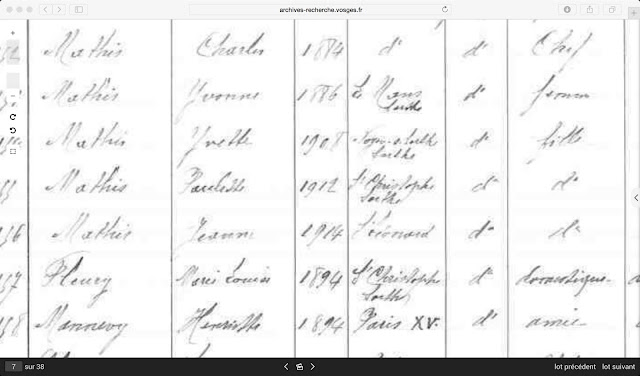 archives-recherche.vosges.fr
Mathis Charles 1884 d° d° Chef
Mathis Yvonne 1886 Le Mans Sarthe d° femme
Mathis Yvette 1908 Sarthe d° fille
Mathis Paulette 1912 St Christophe Sarthe d° d°
Mathis Jeanne 1914 St Léonard d° d°
Fleury Marie Louise 1894 St Christophe Sarthe d° domestique
Mannevy Henriette 1894 Paris XV. d° amie
7 sur 38 lot précédent lot suivant